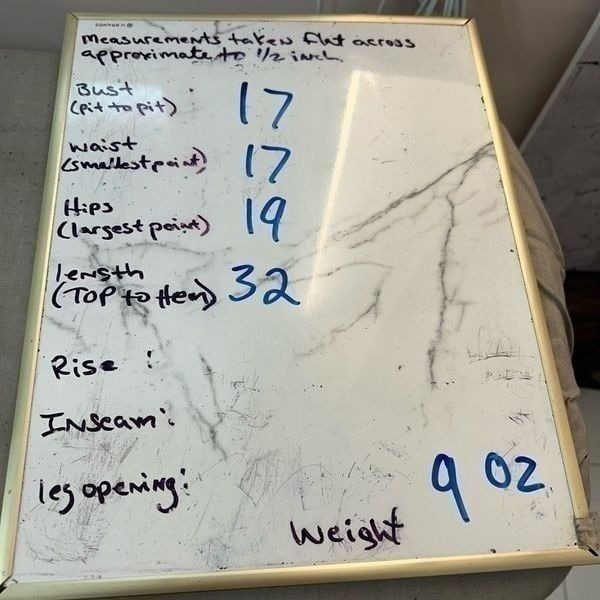 measurements taken flat across
approximate to 1/2 inch
Bust
(pit to pit) 17
waist
(smallest point) 17
Hips
(largest point) 19
length
(TOP to Hem) 32
Rise :
Inseam:
leg opening:
9 oz
Weight